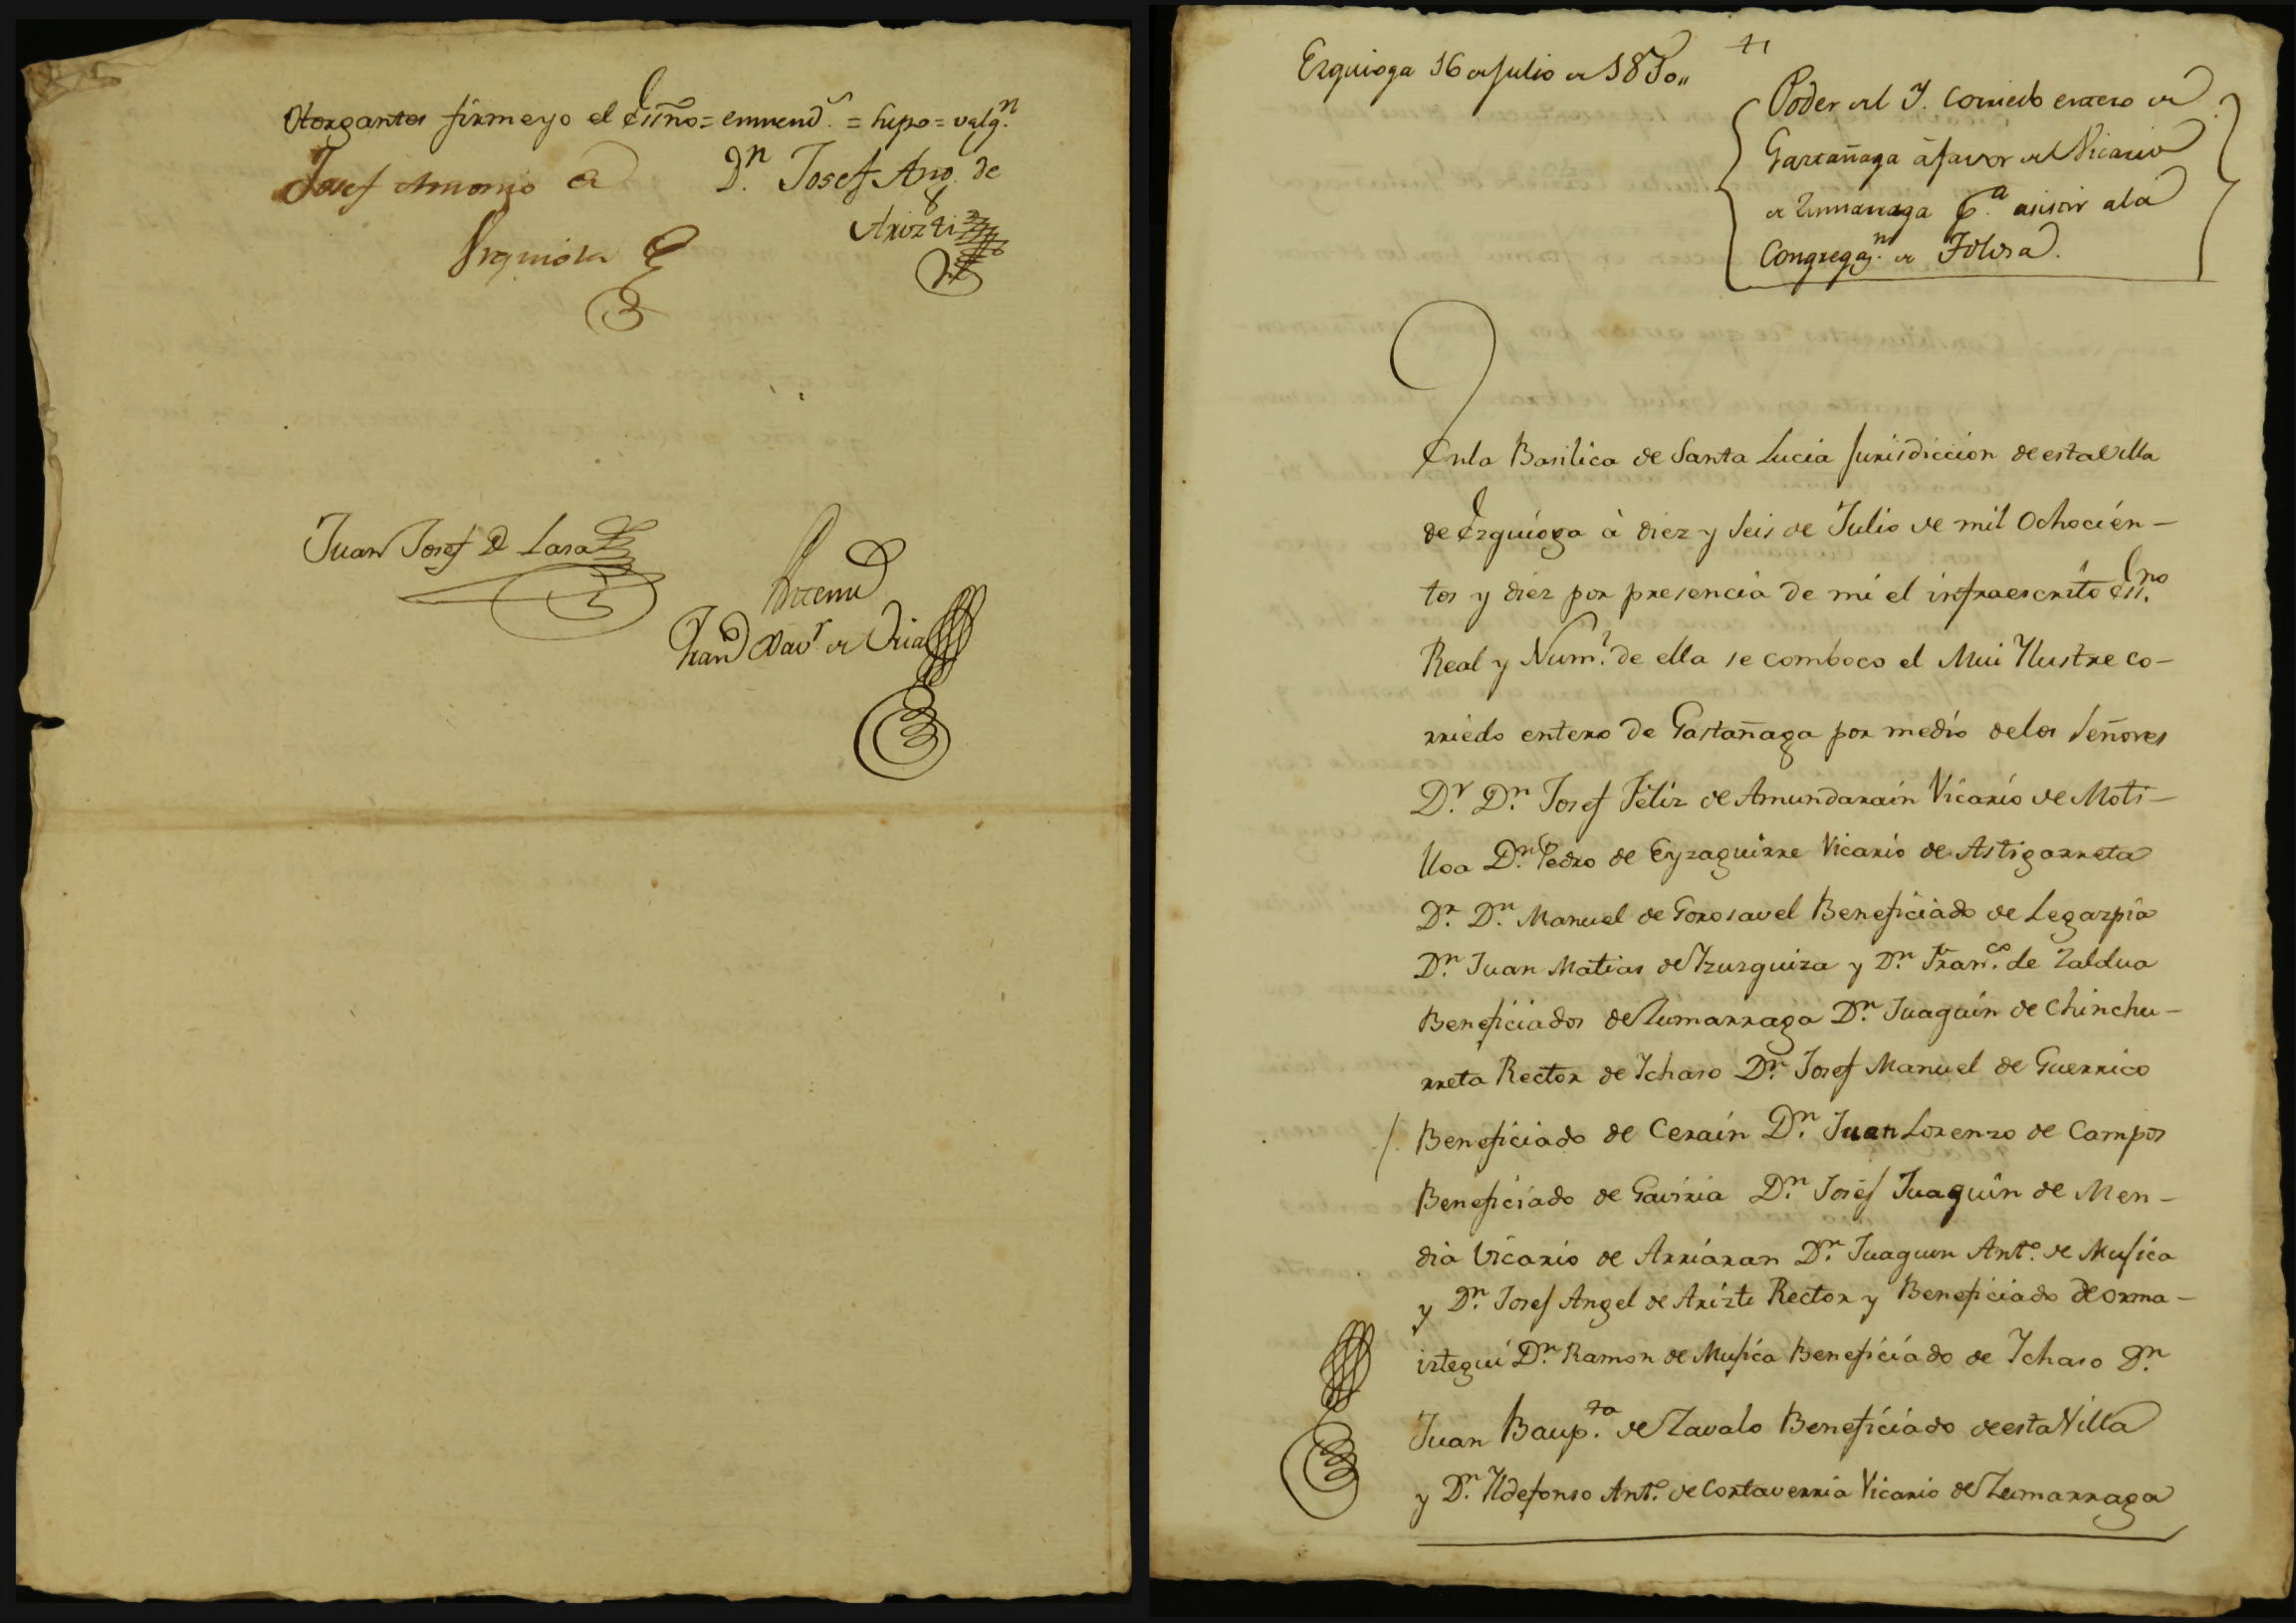 Otorgantes firme yo el Essno = enmend.º = hipo = valg.n
Josef Antonio de D.n Josef Ang. de
Urquiola Arizti
Juan Josef de Lasa
Antemi
Fran Xav.r de Oria
Ezquioga 16 de Julio de 1810,,
Poder del Y. Corriedo entero de
Gaztañaga à favor del Vicario
de Zumarraga p.a asistir a la
Congregaz.n de Tolosa.
En la Basilica de Santa Lucia Jurisdiccion de esta Villa
de Ezquioga à diez y seis de Julio de mil Ochocien-
tos y diez por presencia de mi el infraescrito Ess.no
Real y Num.l de ella se comboco el Mui Ylustre Co-
rriedo entero de Gastañaga por medio de los Señores
D.r D.n Josef Feliz de Amundarain Vicario de Moti-
lloa D.n Pedro de Eyzaguirre Vicario de Astigarreta
D.r D.n Manuel de Gorosavel Beneficiado de Legazpia
D.n Juan Matias de Yzusquiza y D.n Fran.co de Zaldua
Beneficiados de Zumarraga D.n Juaquin de Chinchu-
rreta Rector de Ychaso D.n Josef Manuel de Guerrico
Beneficiado de Cerain D.n Juan Lorenzo de Campos
Beneficiado de Gaviria D.n Josef Juaquin de Men-
dia Vicario de Arriaran D.n Juaquin Ant.o de Musica
y D.n Josef Angel de Arizti Rector y Beneficiado de Orma-
iztegui D.n Ramon de Musica Beneficiado de Ychaso D.n
Juan Baup.ta de Zavalo Beneficiado de esta Villa
y D.n Yldefonso Ant.o de Cortaverria Vicario de Zumarraga